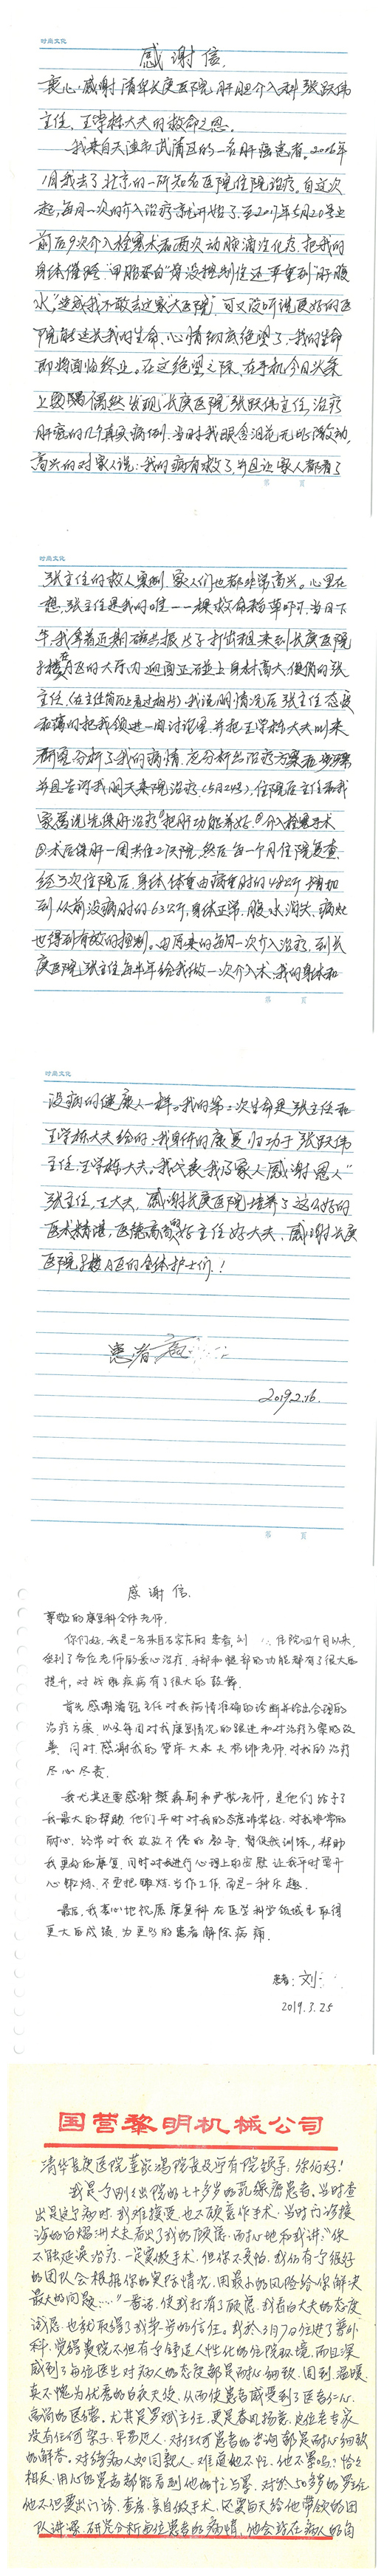 时尚文化
感谢信.
衷心感谢清华长庚医院肝胆介入科张跃伟
主任、王学栋大夫的救命之恩。
我来自天津市武清区的一名肝癌患者。2016年
1月我去了北京的一所知名医院住院治疗。自这次
起,每月一次的介入治疗就开始了,至2017年5月20号止
前后9次介入栓塞术和两次动脉灌注化疗,把我的
身体催跨“甲胎蛋白”莳没控制住还严重到肝腹
水”造成我不敢去这家“大医院”,可又没听说更好的医
院能延长我的生命,心情彻底绝望了、我的生命
即将面临终止。在这绝望之际,在手机今日头条
上偶然发现“长庚医院”张跃伟主任,治疗
肝癌的几个真实病例.当时我眼含泪花无比激动,
高兴的对家人说:我的病有救了,并且让家人都看了
第 页
时尚文化
张主任的救人案例.家人们也都非常高兴。心里在
想,张主任是我的唯一一棵救命稻草吓,当日下
午,我拿着近期磁共振片子打出租来到长庚医院
楼A区的大厅内,迎面正碰上身材高大,俊俏的张
主任,(在主任简历上看过相片)我说明情况后张主任态度
和蔼的把我领进一间讨论室,并把王学栋大夫叫来
研究分析了我的病情.充分析出治疗方案和步骤
并且告诉我明天来院治疗(5月24号),住院后主任和我
家属说先保肝治疗①把肝功能养好.②介入栓塞手术
③术后保肝一周共住2次院,然后每一个月住院复查
经3次住院后,身体体重由病重时的48公斤增加
到从前没病时的63公斤,身体正常,腹水消失,病灶
也得到有效的控制。由原来的每月一次介入治疗,到长
庚医院张主任每半年给我做一次介入术、我的身体和
第 页
时尚文化
没病的健康人一样。我的第二次生命是张主任和
王学栋大夫给的、我身体的康复归功于张跃伟
主任,王学栋大夫。我代表我及家人感谢恩人“
张主任,王大夫,感谢长庚医院培养了这么好的
医术精湛,医德高尚的好主任好大夫,感谢长庚
医院楼A区的全体护士们!
患者
2019.2.16.
第 页
感谢信.
尊敬的康复科全体老师.
你们好.我是一名来自石家庄的患者,刘 住院四个月以来,
受到了各位老师的爱心治疗,手部和腿部的功能都有了很大的
提升,对战胜疾病有了很大的鼓舞.
首先感谢潘钰主任对我病情准确的诊断并给出合理的
治疗方案,以及每周对我康复情况的跟进和对治疗方案的改
善.同时,感谢我的管床大夫 老师,对我的治疗
尽心尽责.
我尤其还要感谢樊森朝和尹航老师,是他们给予了
我最大的帮助,他们平时对我的态度非常好,对我非常的
耐心,经常对我孜孜不倦的教导,督促我训练,帮助
我更好的康复.同时对我进行心理上的安慰,让我平时要开
心锻炼,不要把锻炼当作工作,而是一种乐趣.
最后,我衷心地祝愿康复科在医学科学领域里取得
更大的成绩,为更多的患者解除病痛.
患者:刘
2019.3.25
国营黎明机械公司
清华长庚医院董家鸿院长及所有院领导:你们好!
我是个刚出院的七十多岁的乳腺癌患者,当时查
出是这个病时,我难接受,也不愿意作手术,当时门诊接
诊的白熠洲大夫看出了我的顾虑,耐心地和我讲:“你
不能延误治疗,一定要做手术,但你不要怕,我们有个很好
的团队会根据你的实际情况,用最小的风险给你解决
最大的问题……”一番话,使我打消了顾虑,我看白大夫的态度
诚恳,也就取得了我崇高的信任。我於3月7日住进了普外
科,觉得贵院不但有个舒适人性化的住院环境,而且深
感到了每位医生对病人的态度都是耐心细致,周到,温暖,
真不愧为优秀的白衣天使,从而使患者感受到了医者仁心,
高尚的医德。尤其是罗斌主任,更是春风扬意,这位老专家
没有任何架子,平易近人,对任何患者的咨询都是耐心细致
的解答,对待病人如同亲人,难道他不忙,他不累吗?恰
相反,用心的患者都能看到他的忙与累,对於50多岁的罗主任
他不但要出门诊,查房,亲自做手术,还要白天给他带领的团
队讲课,研究分析每位患者的病情,他会站在病人的角